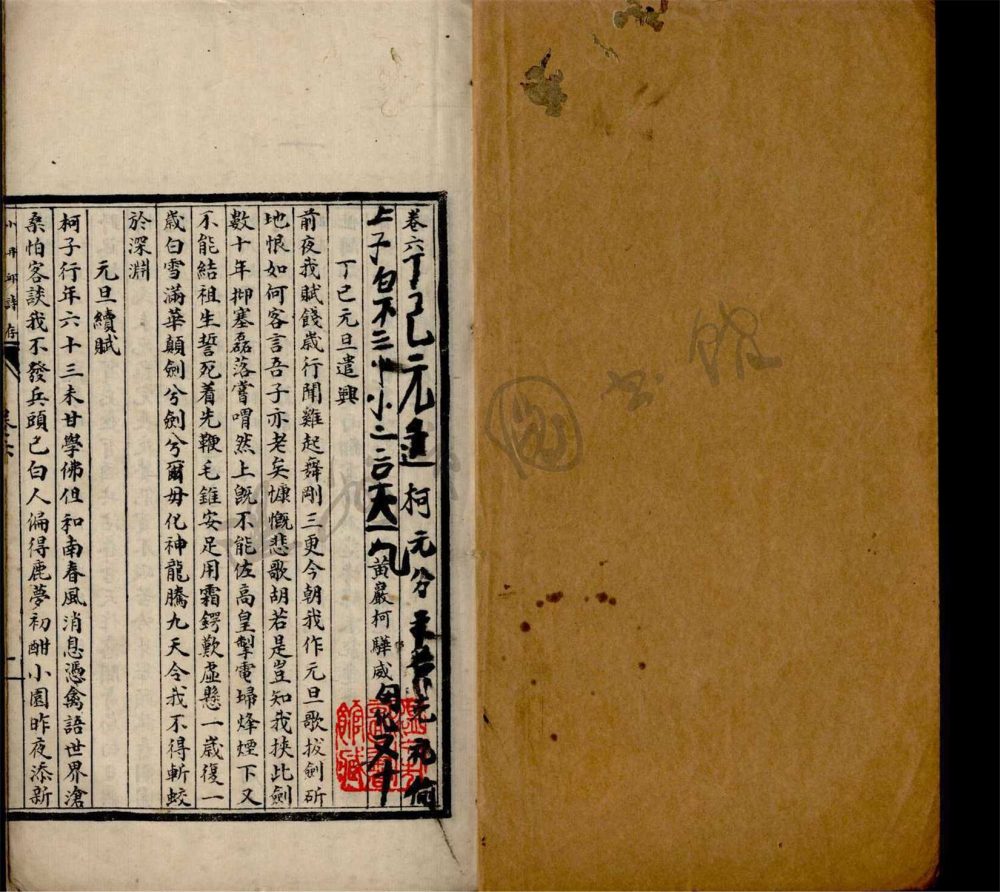 卷六丁己元
上
丁巳元旦遣興
黄巖柯驊威
前夜我賦餞歲行聞雞起舞剛三更今朝我作元旦歌拔劍斫
地恨如何客言吾子亦老矣慷慨悲歌胡若是豈知我挾此劍
數十年抑塞磊落嘗喟然上旣不能佐高皇掣電埽烽煙下又
不能結祖生誓死着先鞭毛錐安足用霜鍔歎虛懸一歲復一
歲白雪滿華顛劍兮劍兮爾毋化神龍騰九天令我不得斬蛟
於深淵
元旦續賦
柯子行年六十三未甘學佛但和南春風消息憑禽語世界滄
桑怕客談我不發兵頭已白人偏得鹿夢初酣小園昨夜添新
小丹邱詩存
卷六
一